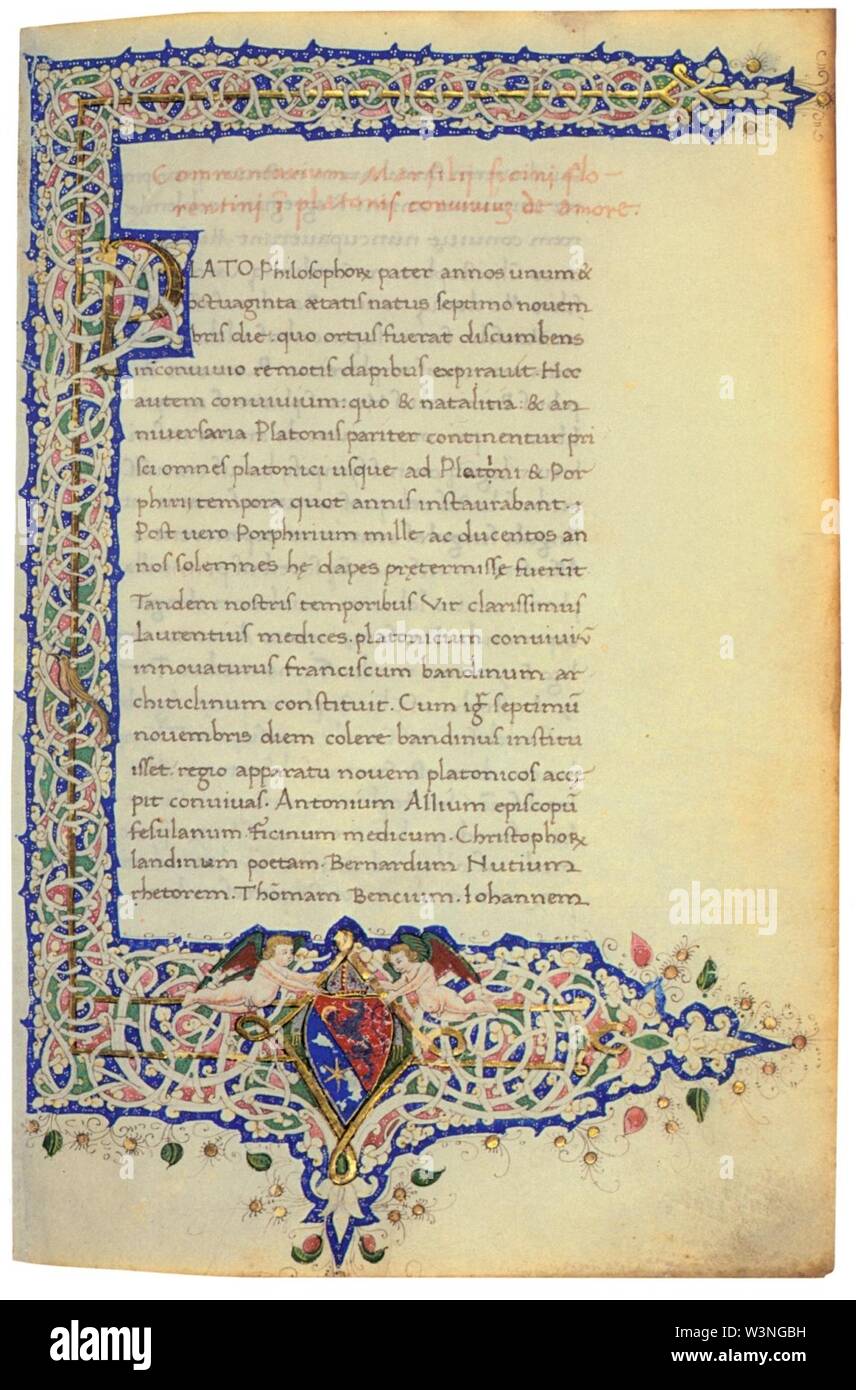 Commentarium Marsilij ficini flo-
rentini ĩ platonis conviviuȝ de amore.
PLATO Philosophoꝝ pater annos unum &
octuaginta ætatis natus septimo novem
bris die. quo ortus fuerat discumbens
in convivio remotis dapibus expiravit. Hoc
autem convivium: quo & natalitia: & an
niversaria Platonis pariter continentur pri
sci omnes platonici usque ad Platoni & Por
phirii tempora quot annis instaurabant.
Post vero Porphirium mille ac ducentos an
nos solemnes hę dapes prętermissę fuerũt
Tandem nostris temporibus Vir clarissimus
laurentius medices. platonicum conviviũ
innovaturus franciscum bandinum ar
chiticlinum constituit. Cum igr̃ septimũ
novembris diem colere bandinus institu
isset. regio apparatu novem platonicos acce
pit convivas. Antonium Allium episcopũ
fesulanum. ficinum medicum. Christophoꝝ
landinum poetam. Bernardum Nutium
rhetorem. Thõmam Bencium. Iohannem
alamy
a
alamy
Image ID: W3NGBH
www.alamy.com